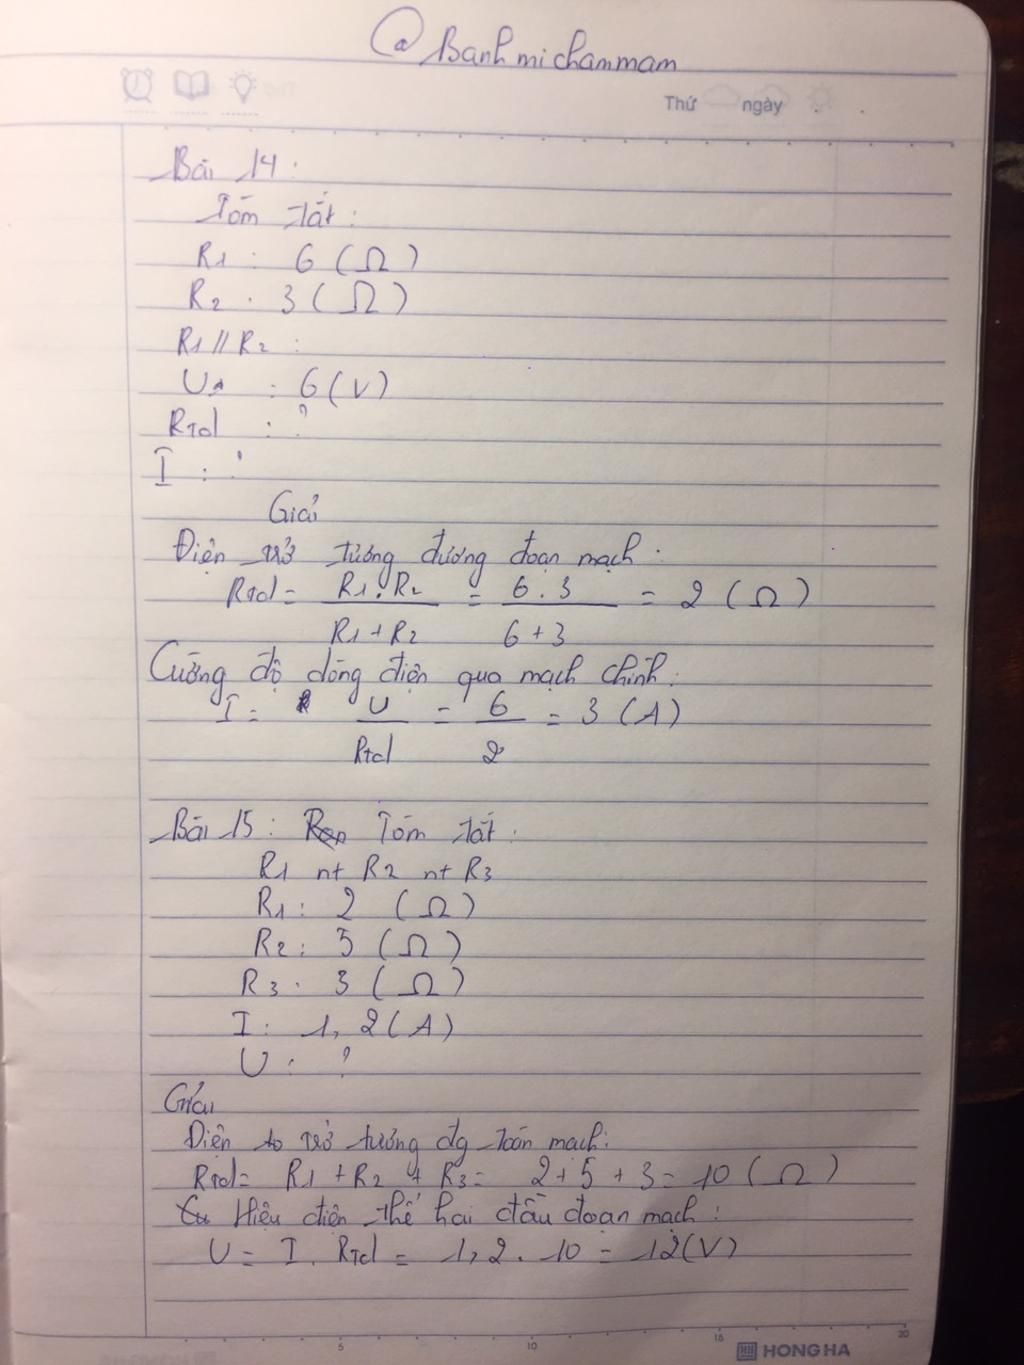 @Banhmichammam
Thứ ngày
Bài 14:
Tóm tắt:
R1 : 6 (Ω)
R2 . 3 (Ω)
R1 // R2 :
U : 6 (V)
Rtd : ?
I : ?
Giải
Điện trở tương đương đoạn mạch:
Rtd = R1.R2 / R1+R2 = 6.3 / 6+3 = 2 (Ω)
Cường độ dòng điện qua mạch chính:
I = U / Rtd = 6 / 2 = 3 (A)
Bài 15: Tóm tắt:
R1 nt R2 nt R3
R1: 2 (Ω)
R2: 5 (Ω)
R3. 3 (Ω)
I: 1,2 (A)
U: ?
Giải
Điện trở tương đg toàn mạch:
Rtd = R1 + R2 + R3 = 2+5+3 = 10 (Ω)
Hiệu điện thế hai đầu đoạn mạch:
U = I. Rtd = 1,2. 10 = 12 (V)
5 10 15 20
HH HONG HA